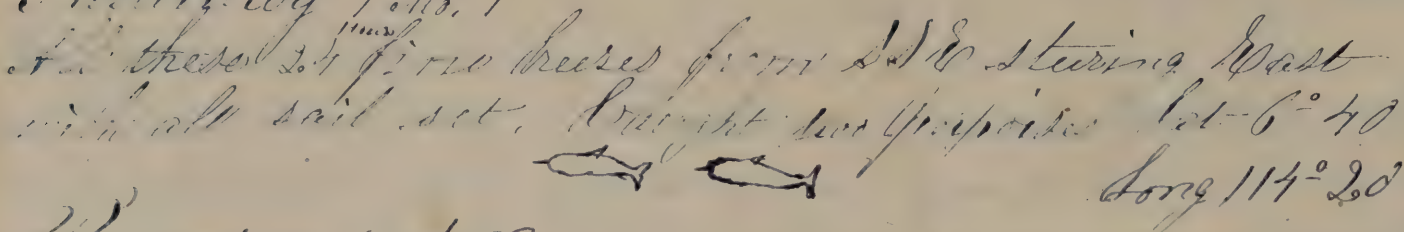 All these 24 hours fine breezes from SSE steering East
with all sail set. Caught two porpoises Lat 6° 40
Long 114° 20